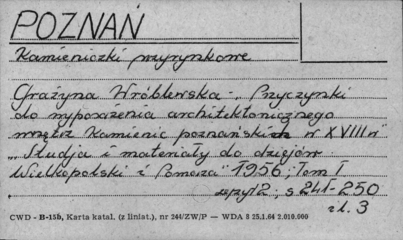 POZNAŃ
Kamieniczki przyrynkowe
Grażyna Wróblewska - "Przyczynki
do wyposażenia architektonicznego
wnętrz kamienic poznańskich w XVIII w"
"Studja i materiały do dziejów
Wielkopolski i Pomorza" 1956; Tom I
zeszyt 2, s 241-250
il. 3
CWD - B-15b, Karta katal. (z liniat.), nr 244/ZW/P — WDA 8 25.1.64 2.010.000